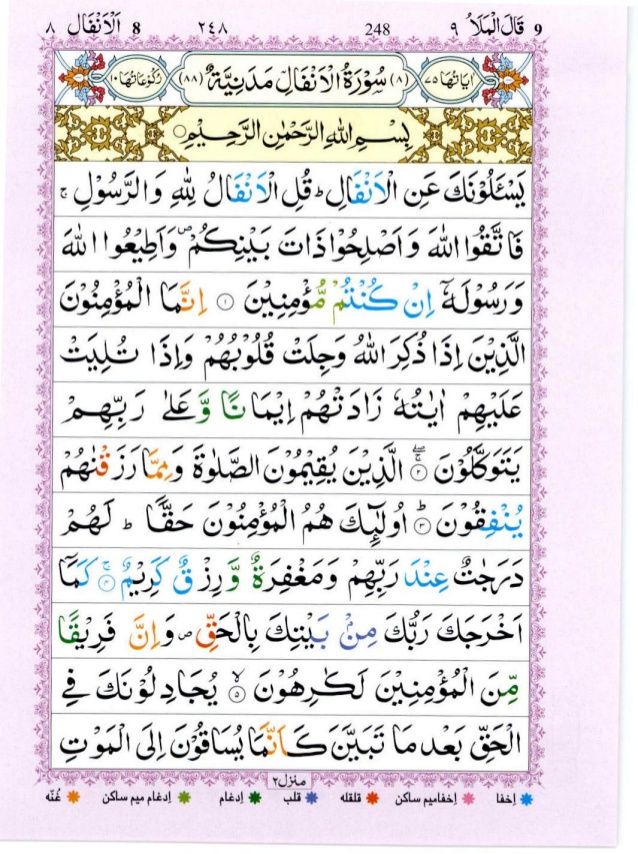 ٩ قَالَ الْمَلَاُ ٩ 248 ٢٤٨ 8 اَلْاَنْفَال ٨
اٰیَاتُهَا ٧٥ (٨) سُوْرَةُ الْاَنْفَالِ مَدَنِیَّةٌ (٨٨) رُكُوْعَاتُهَا ١٠
بِسْمِ اللّٰهِ الرَّحْمٰنِ الرَّحِیْمِ
یَسْـَٔلُوْنَكَ عَنِ الْاَنْفَالِ ؕ قُلِ الْاَنْفَالُ لِلّٰهِ وَ الرَّسُوْلِ ۚ
فَاتَّقُوا اللّٰهَ وَ اَصْلِحُوْا ذَاتَ بَیْنِكُمْ ۪ وَ اَطِیْعُوا اللّٰهَ
وَ رَسُوْلَهٗۤ اِنْ كُنْتُمْ مُّؤْمِنِیْنَ ١ اِنَّمَا الْمُؤْمِنُوْنَ
الَّذِیْنَ اِذَا ذُكِرَ اللّٰهُ وَجِلَتْ قُلُوْبُهُمْ وَ اِذَا تُلِیَتْ
عَلَیْهِمْ اٰیٰتُهٗ زَادَتْهُمْ اِیْمَانًا وَّ عَلٰی رَبِّهِمْ
یَتَوَكَّلُوْنَ ٢ الَّذِیْنَ یُقِیْمُوْنَ الصَّلٰوةَ وَ مِمَّا رَزَقْنٰهُمْ
یُنْفِقُوْنَ ٣ ؕ اُولٰٓىِٕكَ هُمُ الْمُؤْمِنُوْنَ حَقًّا ؕ لَهُمْ
دَرَجٰتٌ عِنْدَ رَبِّهِمْ وَ مَغْفِرَةٌ وَّ رِزْقٌ كَرِیْمٌ ٤ كَمَاۤ
اَخْرَجَكَ رَبُّكَ مِنْۢ بَیْتِكَ بِالْحَقِّ ۪ وَ اِنَّ فَرِیْقًا
مِّنَ الْمُؤْمِنِیْنَ لَكٰرِهُوْنَ ٥ ۙ یُجَادِلُوْنَكَ فِی
الْحَقِّ بَعْدَ مَا تَبَیَّنَ كَاَنَّمَا یُسَاقُوْنَ اِلَی الْمَوْتِ
منزل ٢
اِخفا اِخفامیم ساکن قلقله قلب اِدغام اِدغام میم ساکن غُنّه